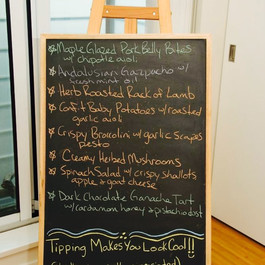 Maple Glazed Pork Belly Bites
w/ chipotle aioli
Andalusian Gazpacho w/
fresh mint oil
Herb Roasted Rack of Lamb
Confit Baby Potatoes w/ roasted
garlic aioli
Crispy Broccolini w/ garlic scapes
pesto
Creamy Herbed Mushrooms
Spinach Salad w/ crispy shallots
apple & goat cheese
Dark Chocolate Ganache Tart
w/ cardamom, honey & pistachio dust
Tipping Makes You Look Cool!!